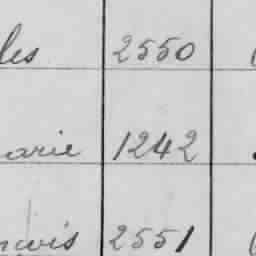 les 2550
arie 1242
ncois 2551